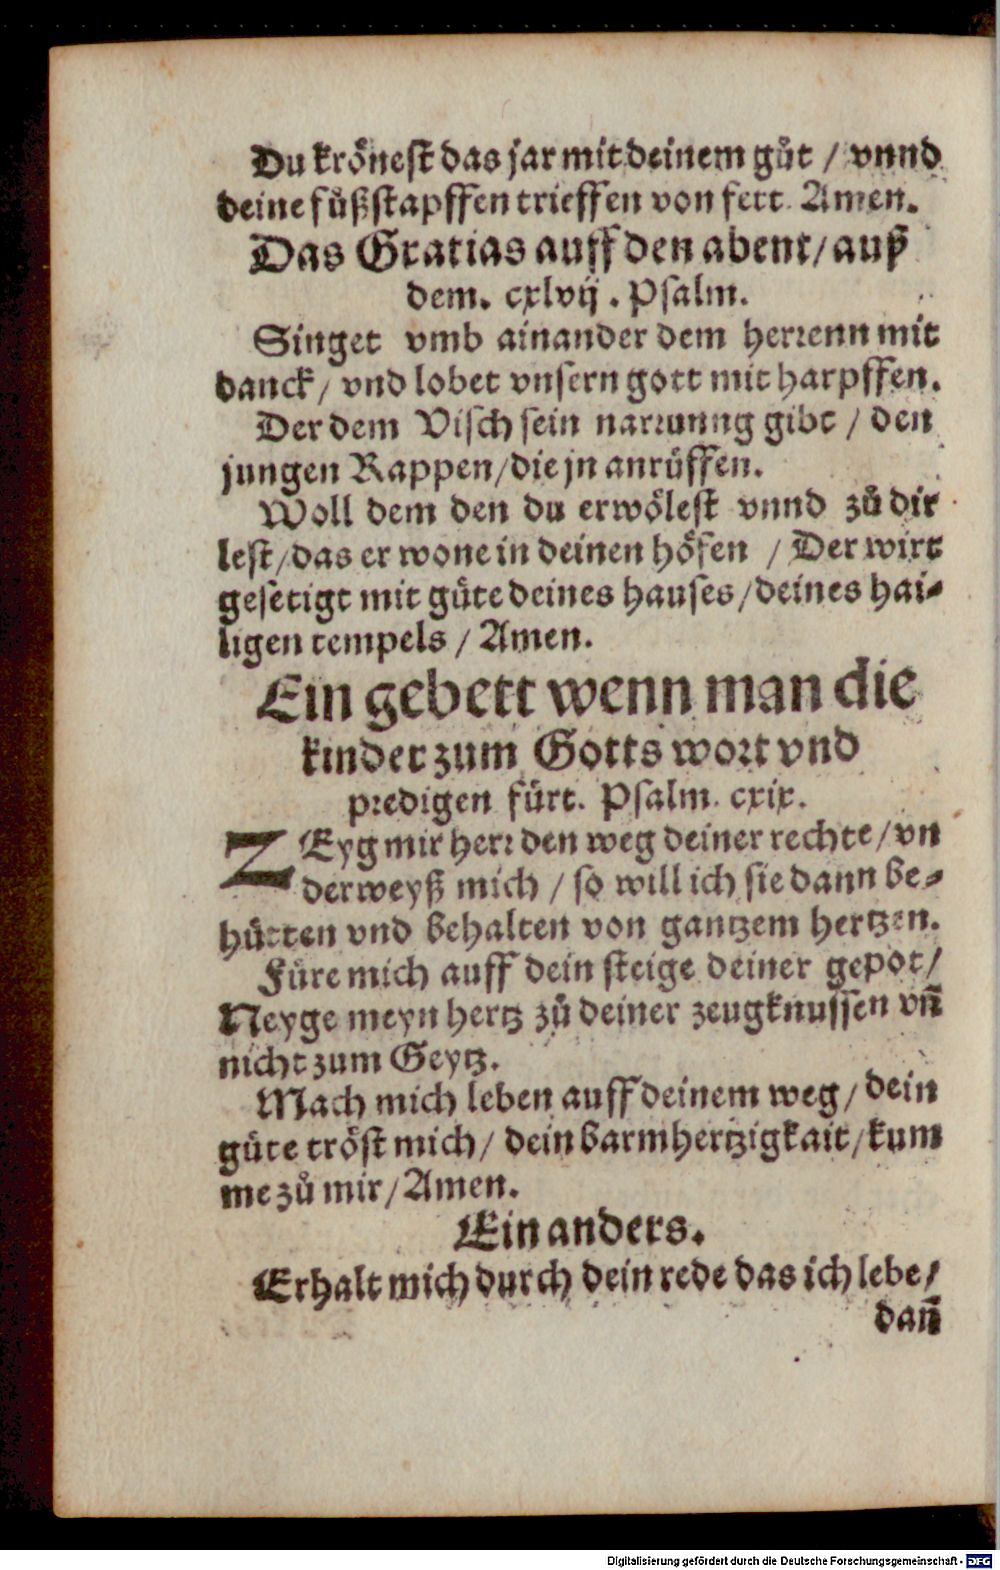 Du krönest das jar mit deinem gůt / vnnd
deine fůßstapffen trieffen von fett. Amen.
Das Gratias auff den abent / auß
dem. cxlvij. Psalm.
Singet vmb ainander dem herrenn mit
danck / vnd lobet vnsern gott mit harpffen.
Der dem Visch sein narrunng gibt / den
jungen Rappen / die jn anrüffen.
Woll dem den du erwölest vnnd zů dir
lest / das er wone in deinen höfen / Der wirt
gesetigt mit güte deines hauses / deines hai-
ligen tempels / Amen.
Ein gebett wenn man die
kinder zum Gotts wort vnd
predigen fürt. Psalm. cxix.
ZEyg mir herr den weg deiner rechte / vn
derweyß mich / so will ich sie dann be-
hütten vnd behalten von gantzem hertzen.
Füre mich auff dein steige deiner gepot /
Neyge meyn hertz zů deiner zeugknussen vñ
nicht zum Geytz.
Mach mich leben auff deinem weg / dein
güte tröst mich / dein barmhertzigkait / kum
me zů mir / Amen.
Ein anders.
Erhalt mich durch dein rede das ich lebe /
dañ
Digitalisierung gefördert durch die Deutsche Forschungsgemeinschaft - DFG